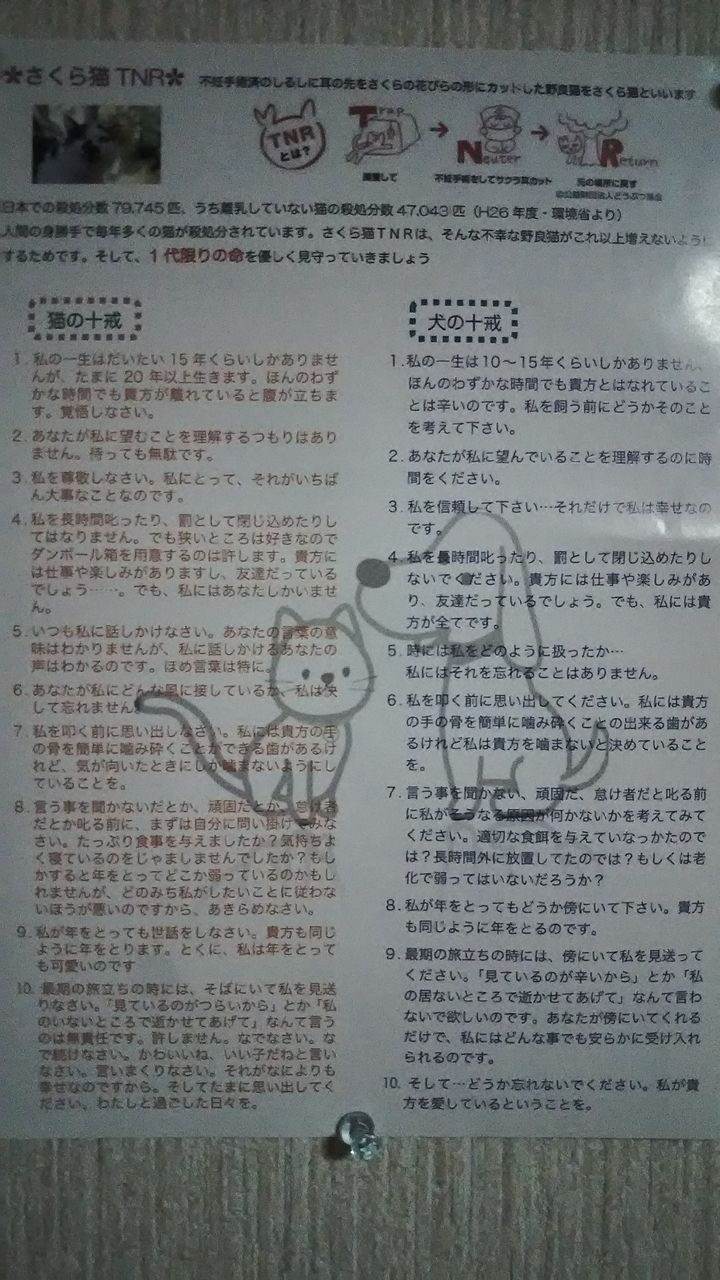 ✲さくら猫 TNR✲ 不妊手術済のしるしに耳の先をさくらの花びらの形にカットした野良猫をさくら猫といいます
TNR とは?
Trap
Neuter
Return
捕獲して
不妊手術をしてサクラ耳カット
元の場所に戻す
©公益財団法人どうぶつ基金
日本での殺処分数 79,745 匹、うち離乳していない猫の殺処分数 47,043 匹（H26 年度・環境省より）
人間の身勝手で毎年多くの猫が殺処分されています。さくら猫TNRは、そんな不幸な野良猫がこれ以上増えないように
するためです。そして、1代限りの命を優しく見守っていきましょう
猫の十戒
1. 私の一生はだいたい 15 年くらいしかありませ
んが、たまに 20 年以上生きます。ほんのわず
かな時間でも貴方が離れていると腹が立ちま
す。覚悟しなさい。
2. あなたが私に望むことを理解するつもりはあり
ません。待っても無駄です。
3. 私を尊敬しなさい。私にとって、それがいちば
ん大事なことなのです。
4. 私を長時間叱ったり、罰として閉じ込めたりし
てはなりません。でも狭いところは好きなので
ダンボール箱を用意するのは許します。貴方に
は仕事や楽しみがありますし、友達だっている
でしょう……。でも、私にはあなたしかいませ
ん。
5. いつも私に話しかけなさい。あなたの言葉の意
味はわかりませんが、私に話しかけるあなたの
声はわかるのです。ほめ言葉は特に。
6. あなたが私にどんな風に接しているか、私は決
して忘れません。
7. 私を叩く前に思い出しなさい。私には貴方の手
の骨を簡単に噛み砕くことができる歯があるけ
れど、気が向いたときにしか噛まないようにし
ていることを。
8. 言う事を聞かないだとか、頑固だとか、怠け者
だとか叱る前に、まずは自分に問い掛けてみな
さい。たっぷり食事を与えましたか？気持ちよ
く寝ているのをじゃましませんでしたか？もし
かすると年をとってどこか弱っているのかもし
れませんが、どのみち私がしたいことに従わな
いほうが悪いのですから、あきらめなさい。
9. 私が年をとっても世話をしなさい。貴方も同じ
ように年をとります。とくに、私は年をとって
も可愛いのです
10. 最期の旅立ちの時には、そばにいて私を見送
りなさい。「見ているのがつらいから」とか「私
のいないところで逝かせてあげて」なんて言う
のは無責任です。許しません。なでなさい。な
で続けなさい。かわいいね、いい子だねと言い
なさい。言いまくりなさい。それがなによりも
幸せなのですから。そしてたまに思い出してく
ださい。わたしと過ごした日々を。
犬の十戒
1. 私の一生は10～15年くらいしかありません、
ほんのわずかな時間でも貴方とはなれているこ
とは辛いのです。私を飼う前にどうかそのこと
を考えて下さい。
2. あなたが私に望んでいることを理解するのに時
間をください。
3. 私を信頼して下さい…それだけで私は幸せなの
です。
4. 私を長時間叱ったり、罰として閉じ込めたりし
ないでください。貴方には仕事や楽しみがあ
り、友達だっているでしょう。でも、私には貴
方が全てです。
5. 時には私をどのように扱ったか…
私にはそれを忘れることはありません。
6. 私を叩く前に思い出してください。私には貴方
の手の骨を簡単に噛み砕くことの出来る歯があ
るけれど私は貴方を噛まないと決めていること
を。
7. 言う事を聞かない、頑固だ、怠け者だと叱る前
に私がそうなる原因が何かないかを考えてみて
ください。適切な食餌を与えていなっかたので
は？長時間外に放置してたのでは？もしくは老
化で弱ってはいないだろうか？
8. 私が年をとってもどうか傍にいて下さい。貴方
も同じように年をとるのです。
9. 最期の旅立ちの時には、傍にいて私を見送って
ください。「見ているのが辛いから」とか「私
の居ないところで逝かせてあげて」なんて言わ
ないで欲しいのです。あなたが傍にいてくれる
だけで、私にはどんな事でも安らかに受け入れ
られるのです。
10. そして…どうか忘れないでください。私が貴
方を愛しているということを。